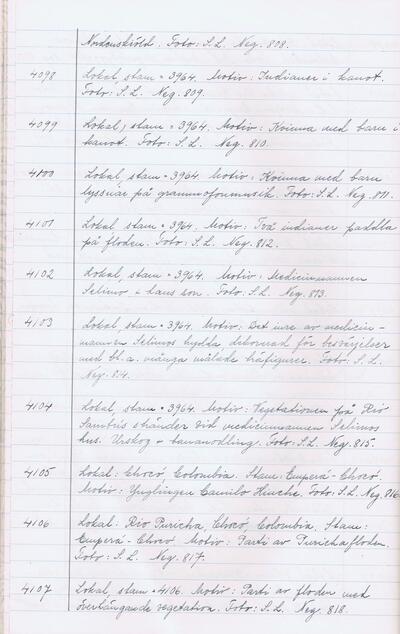 Nordenskiöld. Foto: S.L. Neg. 808.
4098 Lokal, stam = 3964. Motiv: Indianer i kanot.
Foto: S.L. Neg. 809.
4099 Lokal, stam = 3964. Motiv: Kvinna med barn i
kanot. Foto: S.L. Neg. 810.
4100 Lokal, stam = 3964. Motiv: Kvinna med barn
lyssnar på grammofonmusik. Foto: S.L. Neg. 811.
4101 Lokal, stam = 3964. Motiv: Två indianer paddla
på floden. Foto: S.L. Neg. 812.
4102 Lokal, stam = 3964. Motiv: Medicinmannen
Selimo + hans son. Foto: S.L. Neg. 813.
4103 Lokal, stam = 3964. Motiv: Det inre av medicin-
mannen Selimos hydda dekorerad för besvärjelser
med bl.a. många målade träfigurer. Foto: S.L.
Neg. 814.
4104 Lokal, stam = 3964. Motiv: Vegetationen på Rio
Sambús stränder vid medicinmannen Selimos
hus. Urskog + bananodling. Foto: S.L. Neg. 815.
4105 Lokal: Chocó Colombia. Stam: Emperá-Chocó.
Motiv: Ynglingen Camilo Huache. Foto: S.L. Neg. 816.
4106 Lokal: Rio Puricha, Chocó, Colombia. Stam:
Emperá-Chocó Motiv: Parti av Purichafloden.
Foto: S.L. Neg. 817.
4107 Lokal, stam = 4106. Motiv: Parti av floden med
överhängande vegetation. Foto: S.L. Neg. 818.